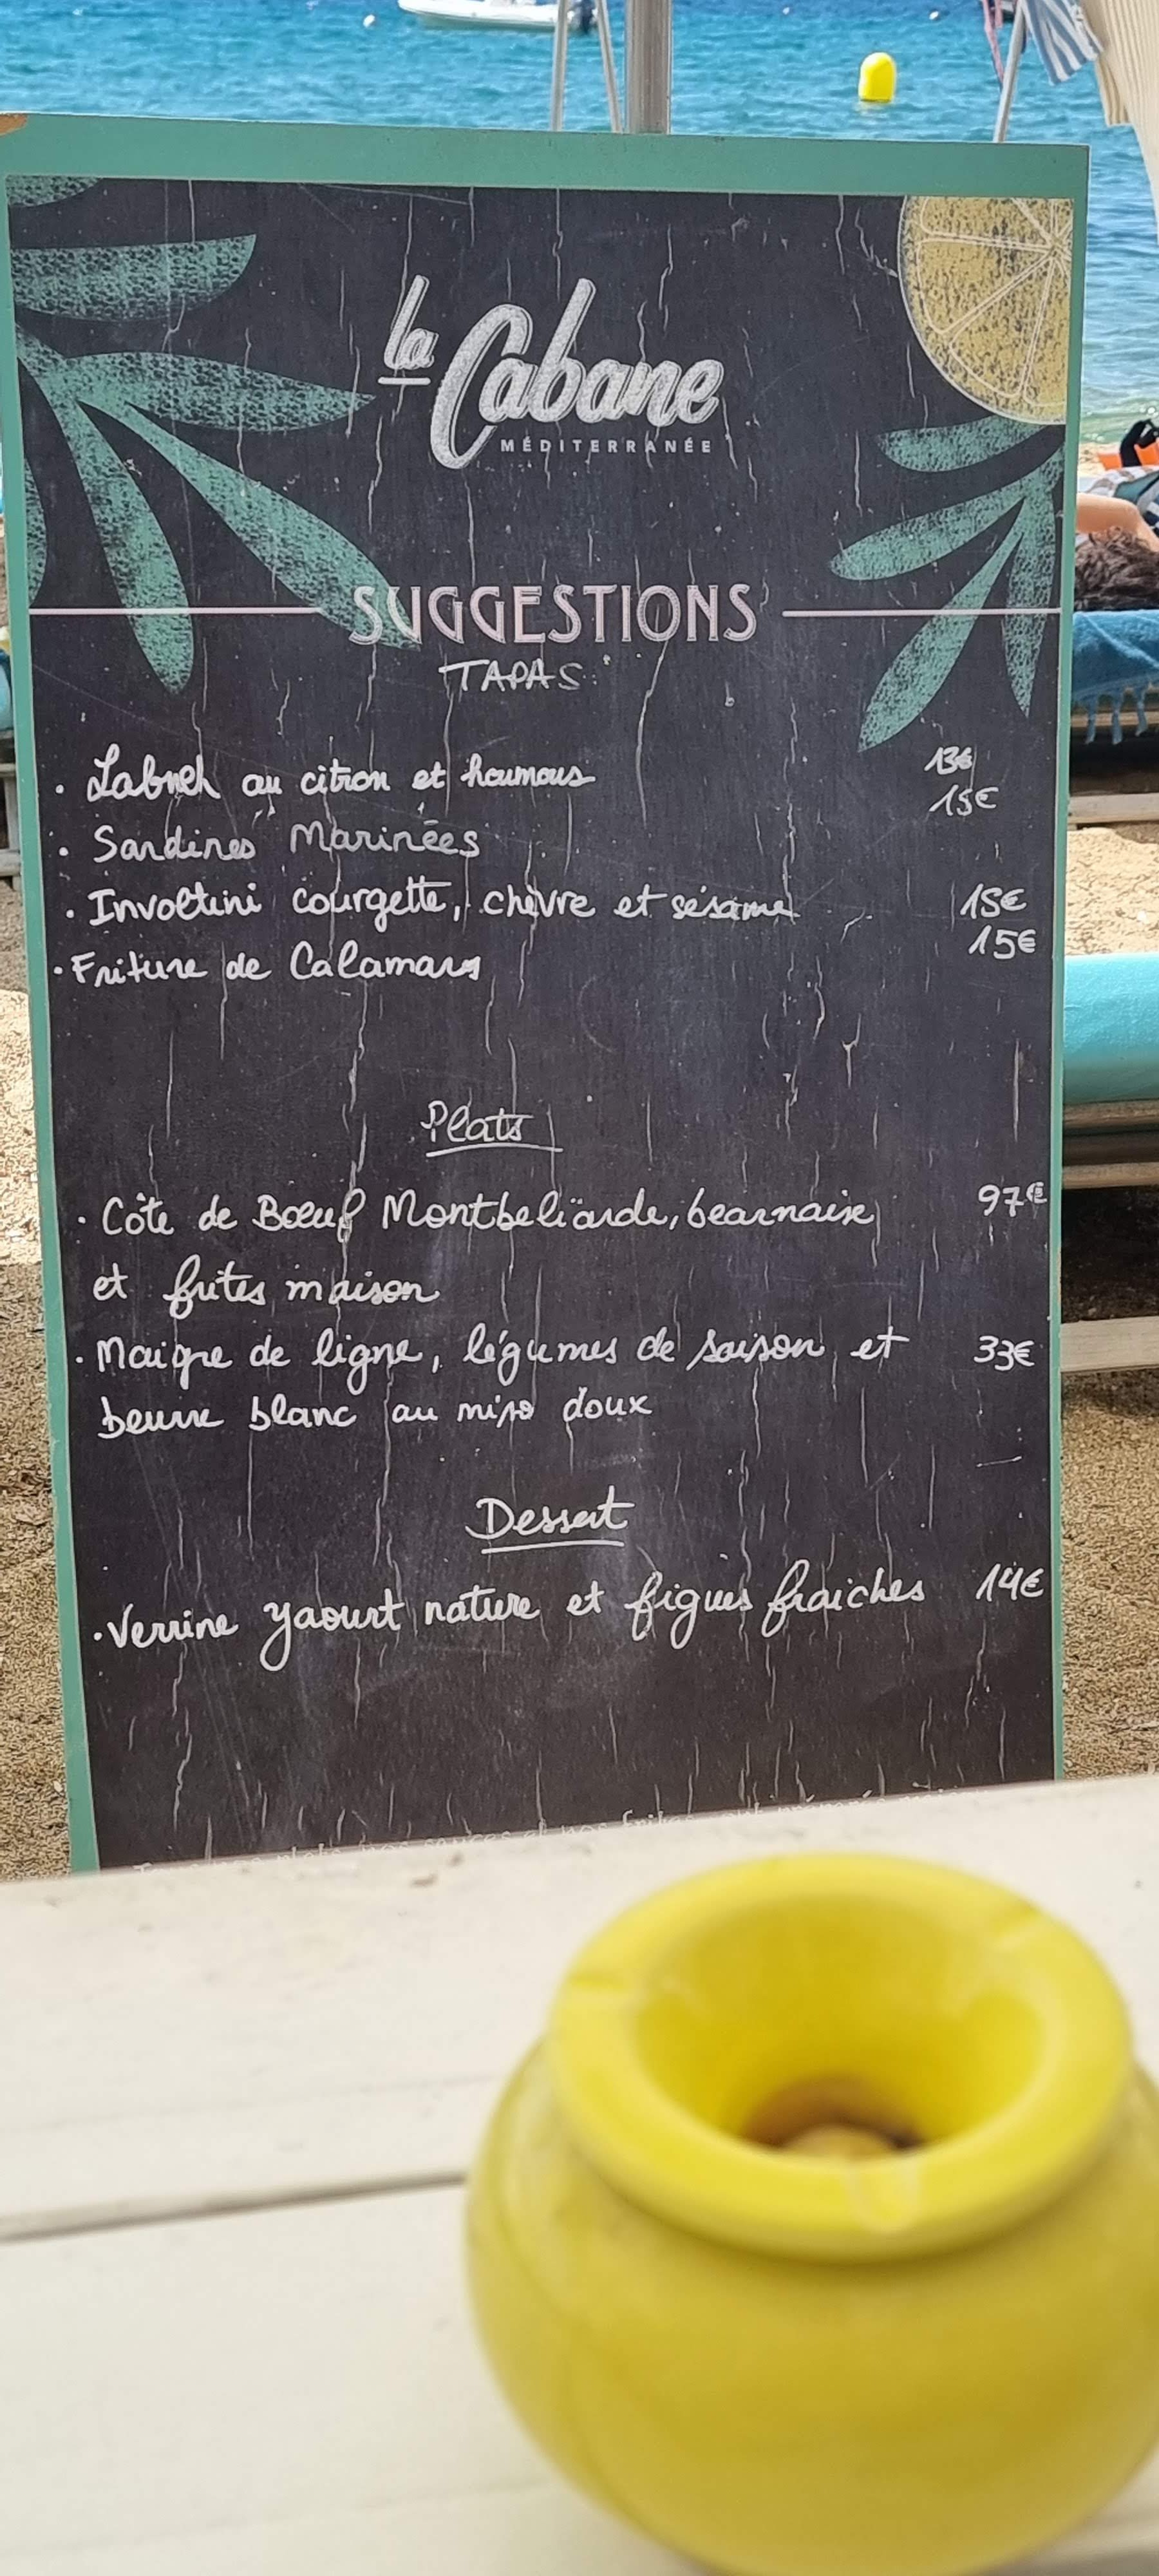 la Cabane
MÉDITERRANÉE
SUGGESTIONS
TAPAS:
· Labneh au citron et houmous 13€
· Sardines Marinées 15€
· Involtini courgette, chèvre et sésame 15€
· Friture de Calamars 15€
Plats
· Côte de Boeuf Montbeliarde, bearnaise 97€
et frites maison
· Maigre de ligne, légumes de saison et 33€
beurre blanc au miso doux
Dessert
· Verrine yaourt nature et figues fraiches 14€